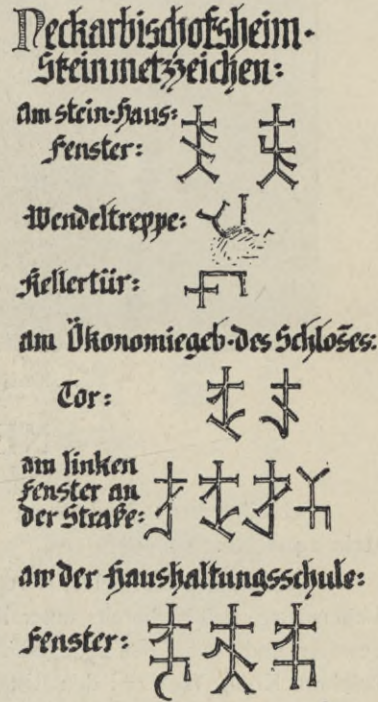 Neckarbischofsheim·
Steinmetzzeichen:
am stein·Haus:
Fenster:
Wendeltreppe:
Kellertür:
am Ökonomiegeb·des Schloßes:
Tor:
am linken
Fenster an
der Straße:
an der Haushaltungsschule:
Fenster: